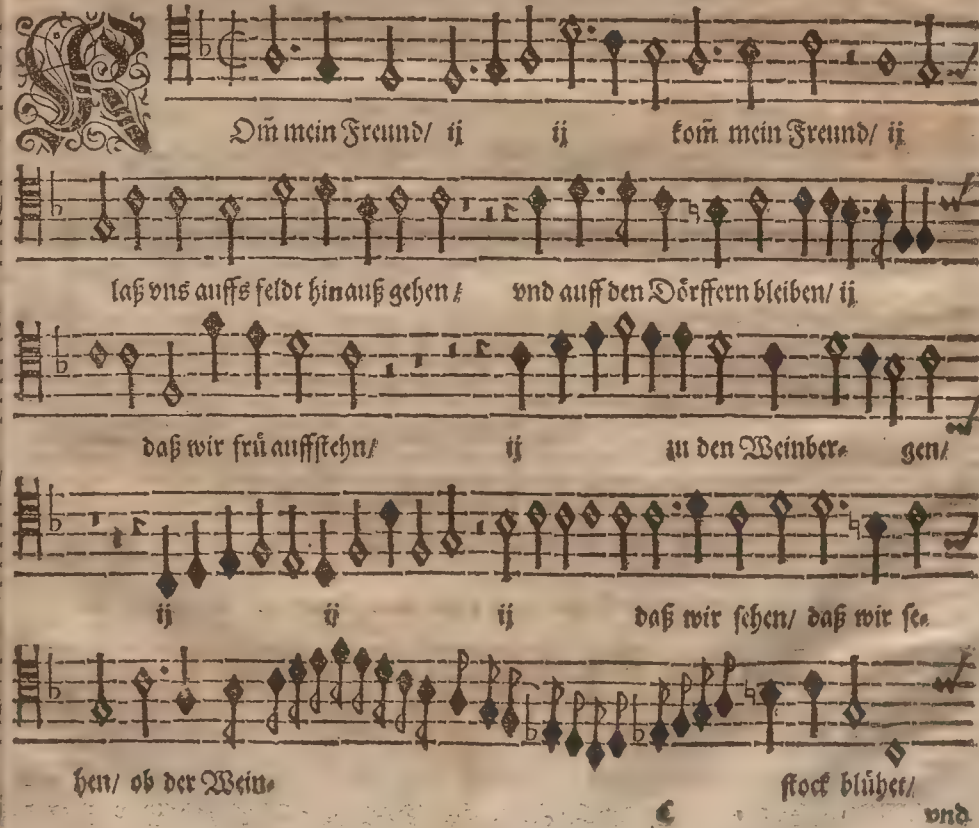 KOm̄ mein Freund/ ij ij kom̄ mein Freund/ ij
laß vns auffs feldt hinauß gehen/ vnd auff den Dörffern bleiben/ ij
daß wir frü auffstehn/ ij zu den Weinber- gen/
ij ij ij daß wir sehen/ daß wir se-
hen/ ob der Wein- stock blühet/
C vnd